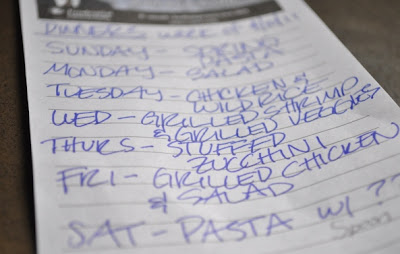 DINNERS WEEK OF
SUNDAY - SPRING
PASTA
MONDAY - SALAD
TUESDAY - CHICKEN &
WILD RICE
WED - GRILLED SHRIMP
& GRILLED VEGGIES
THURS - STUFFED
ZUCCHINI
FRI - GRILLED CHICKEN
& SALAD
SAT - PASTA W/ ??